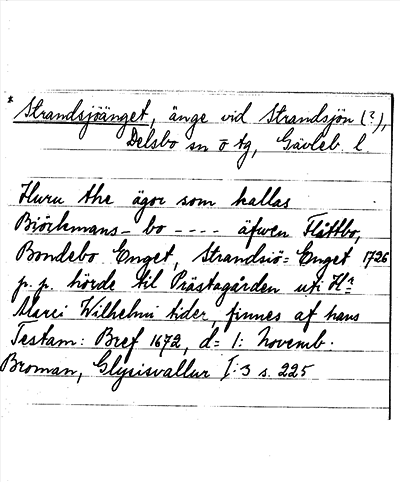 * Strandsjöänget, änge vid Strandsjön (?),
Delsbo sn o tg, Gävleb. l
Huru the ägor som kallas
Biörckmans-bo ---- äfwen Flåttbo,
Bondebo Enget, Strandsiö=Enget 1726
p. p. hörde til Prästagården uti Hr
Marci Wilhelmi tider, finnes af hans
Testam: Bref 1672, d= 1: Novemb.
Broman, Glysisvallur I:3 s. 225